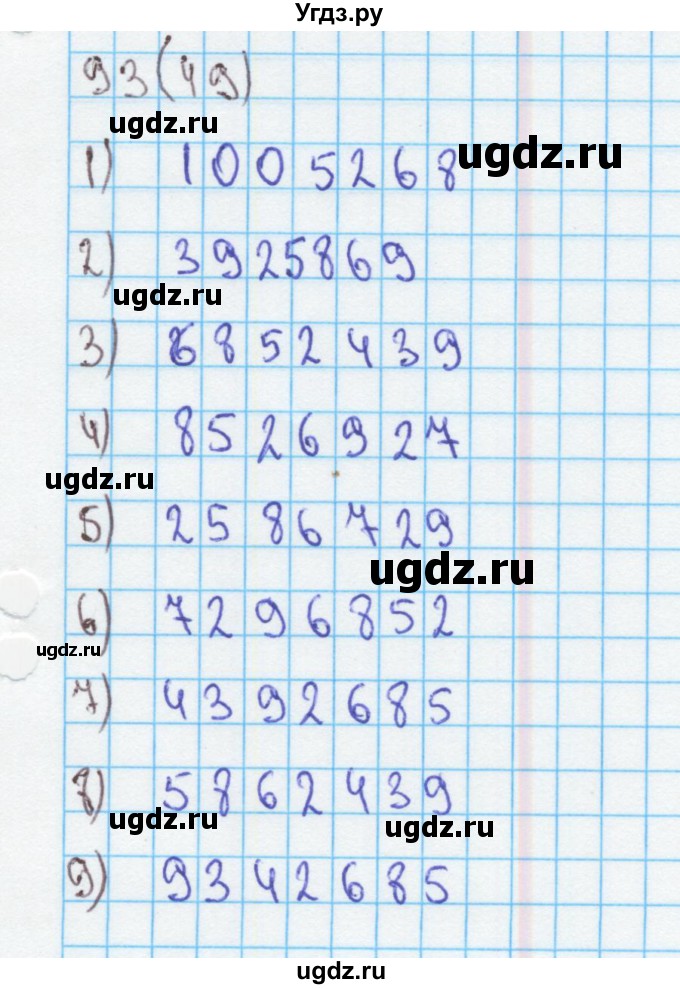 Угдз.ру
93(49)
ugdz.ru
1) 1005268
ugdz.ru
2) 3925869
ugdz.ru
3) 6852439
4) 8526927
ugdz.ru
5) 2586729
ugdz.ru
6) 7296852
ugdz.ru
7) 4392685
8) 5862439
ugdz.ru
ugdz.ru
9) 9342685
ugdz.ru